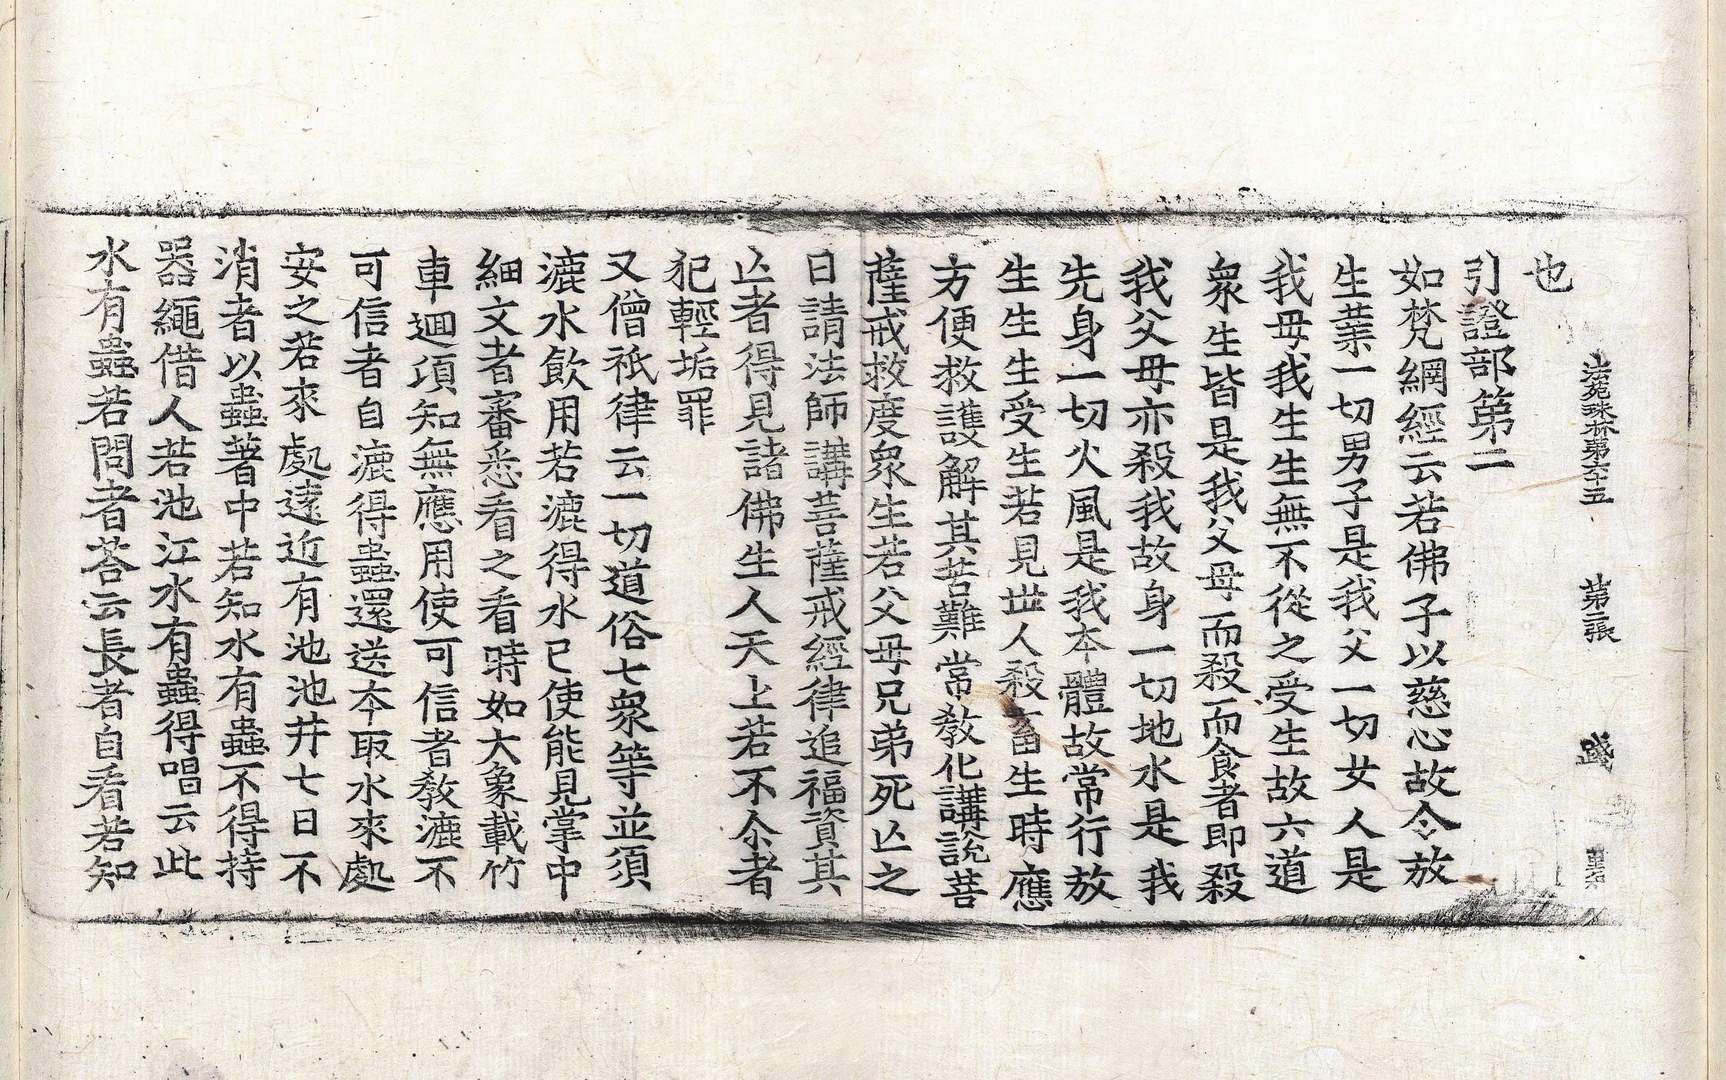 法苑珠林第六十五 第二張 踐
也
引證部第二
如梵網經云若佛子以慈心故令放
生業一切男子是我父一切女人是
我母我生生無不從之受生故六道
衆生皆是我父母而殺而食者即殺
我父母亦殺我故身一切地水是我
先身一切火風是我本體故常行放
生生生受生若見世人殺畜生時應
方便救護解其苦難常教化講說菩
薩戒救度衆生若父母兄弟死亾之
日請法師講菩薩戒經律追福資其
亾者得見諸佛生人天上若不尒者
犯輕垢罪
又僧祇律云一切道俗七衆等並須
漉水飲用若漉得水已使能見掌中
細文者審悉看之看時如大象載竹
車迴項知無應用使可信者教漉不
可信者自漉得蟲還送本取水來處
安之若來處遠近有池池井七日不
消者以蟲著中若知水有蟲不得持
器繩借人若池江水有蟲得唱云此
水有蟲若問者荅云長者自看若知